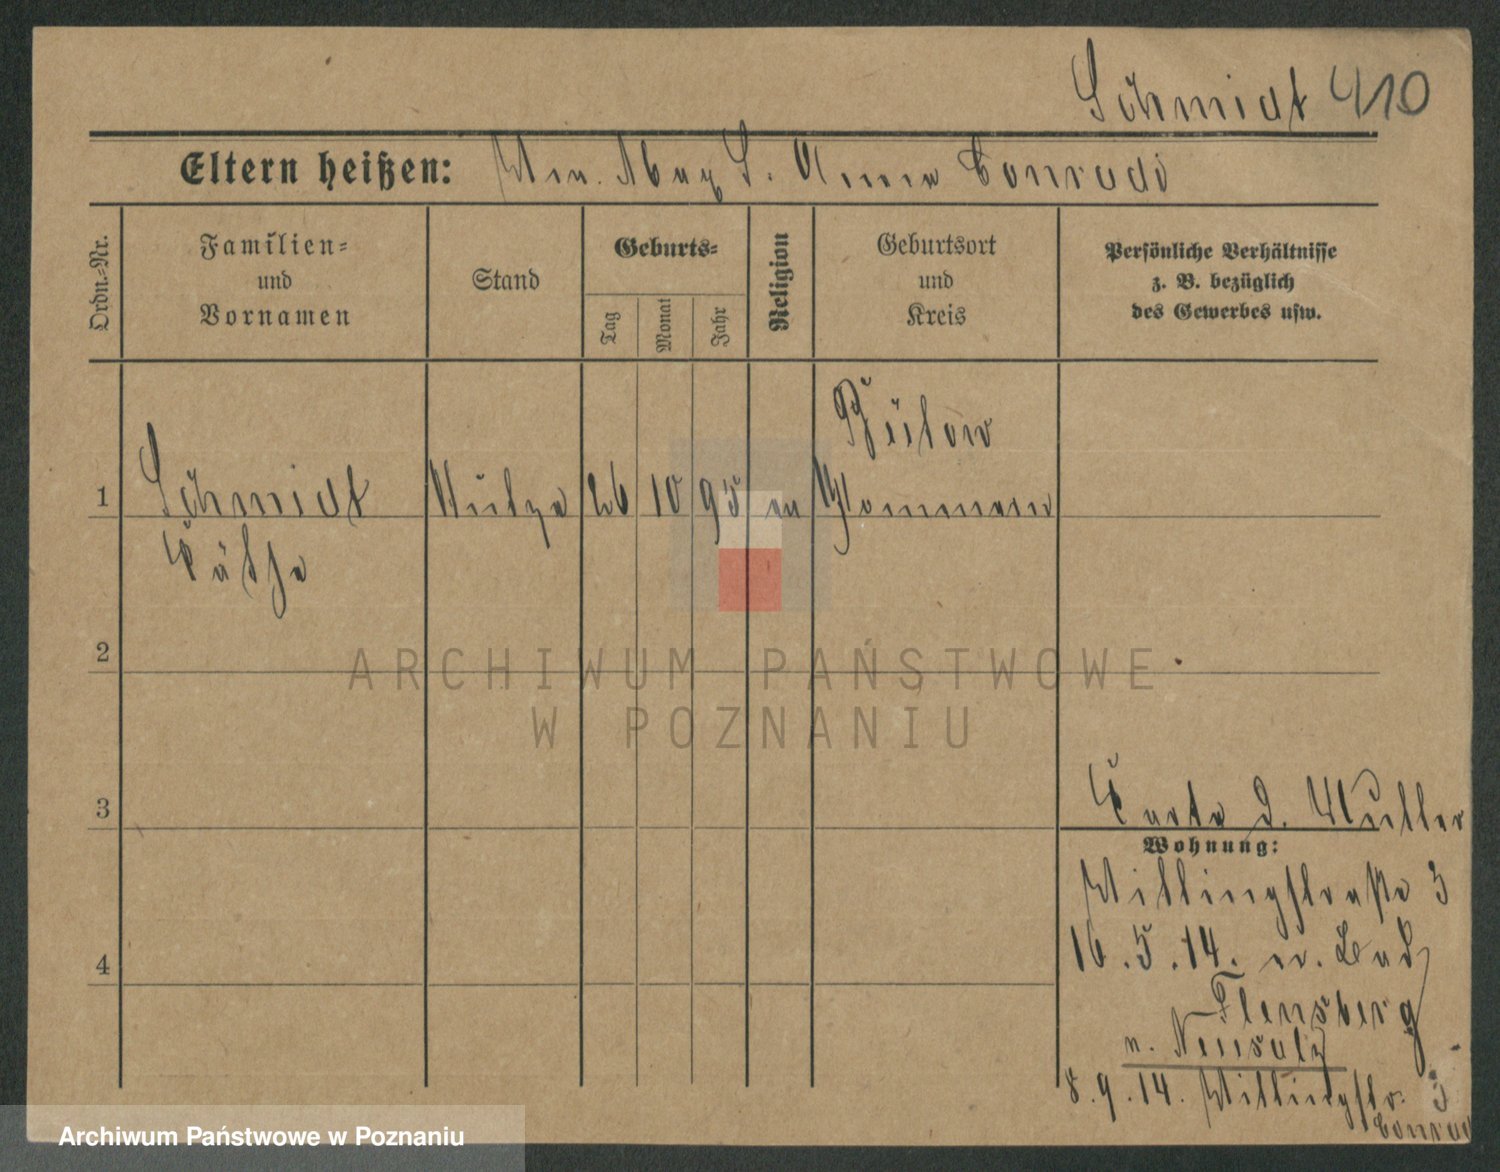 Schmidt 410
Eltern heißen: S. Anna Conradi
Ordn.-Nr.
Familien-
und
Vornamen
Stand
Geburts-
Tag
Monat
Jahr
Religion
Geburtsort
und
Kreis
Persönliche Verhältnisse
z. B. bezüglich
des Gewerbes usw.
Bütow
1 Schmidt 26 10 95 ev Pommern
Käthe
2
3
Karte d. Mutter
Wohnung:
Willingstraße 3
16.5.14. n. Bad
Flensberg
n. Neusalz
8.9.14. Willingstr. 3
Conrad
4
ARCHIWUM PAŃSTWOWE
W POZNANIU
Archiwum Państwowe w Poznaniu